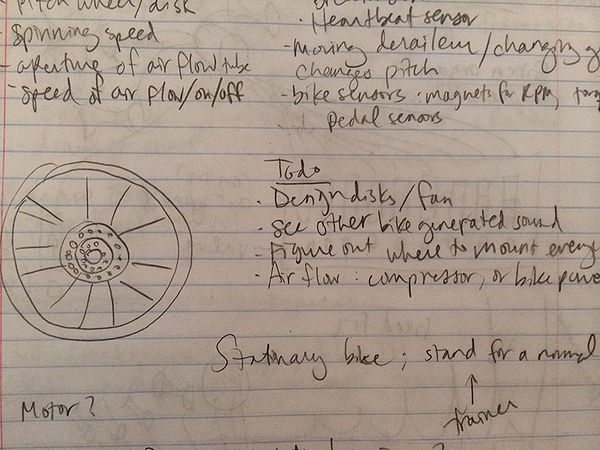 pitch wheel/disk
- spinning speed
- aperture of air flow tube
- speed of air flow/on/off
· Heartbeat sensor
- moving deraileur/changing g
changes pitch
- bike sensors: magnets for RPM,
pedal sensors
Todo
· Design disks/fan
- see other bike generated sound
- Figure out where to mount every
· Air flow: compressor, or bike powe
Stationary bike; stand for a normal
↑
trainer
Motor?